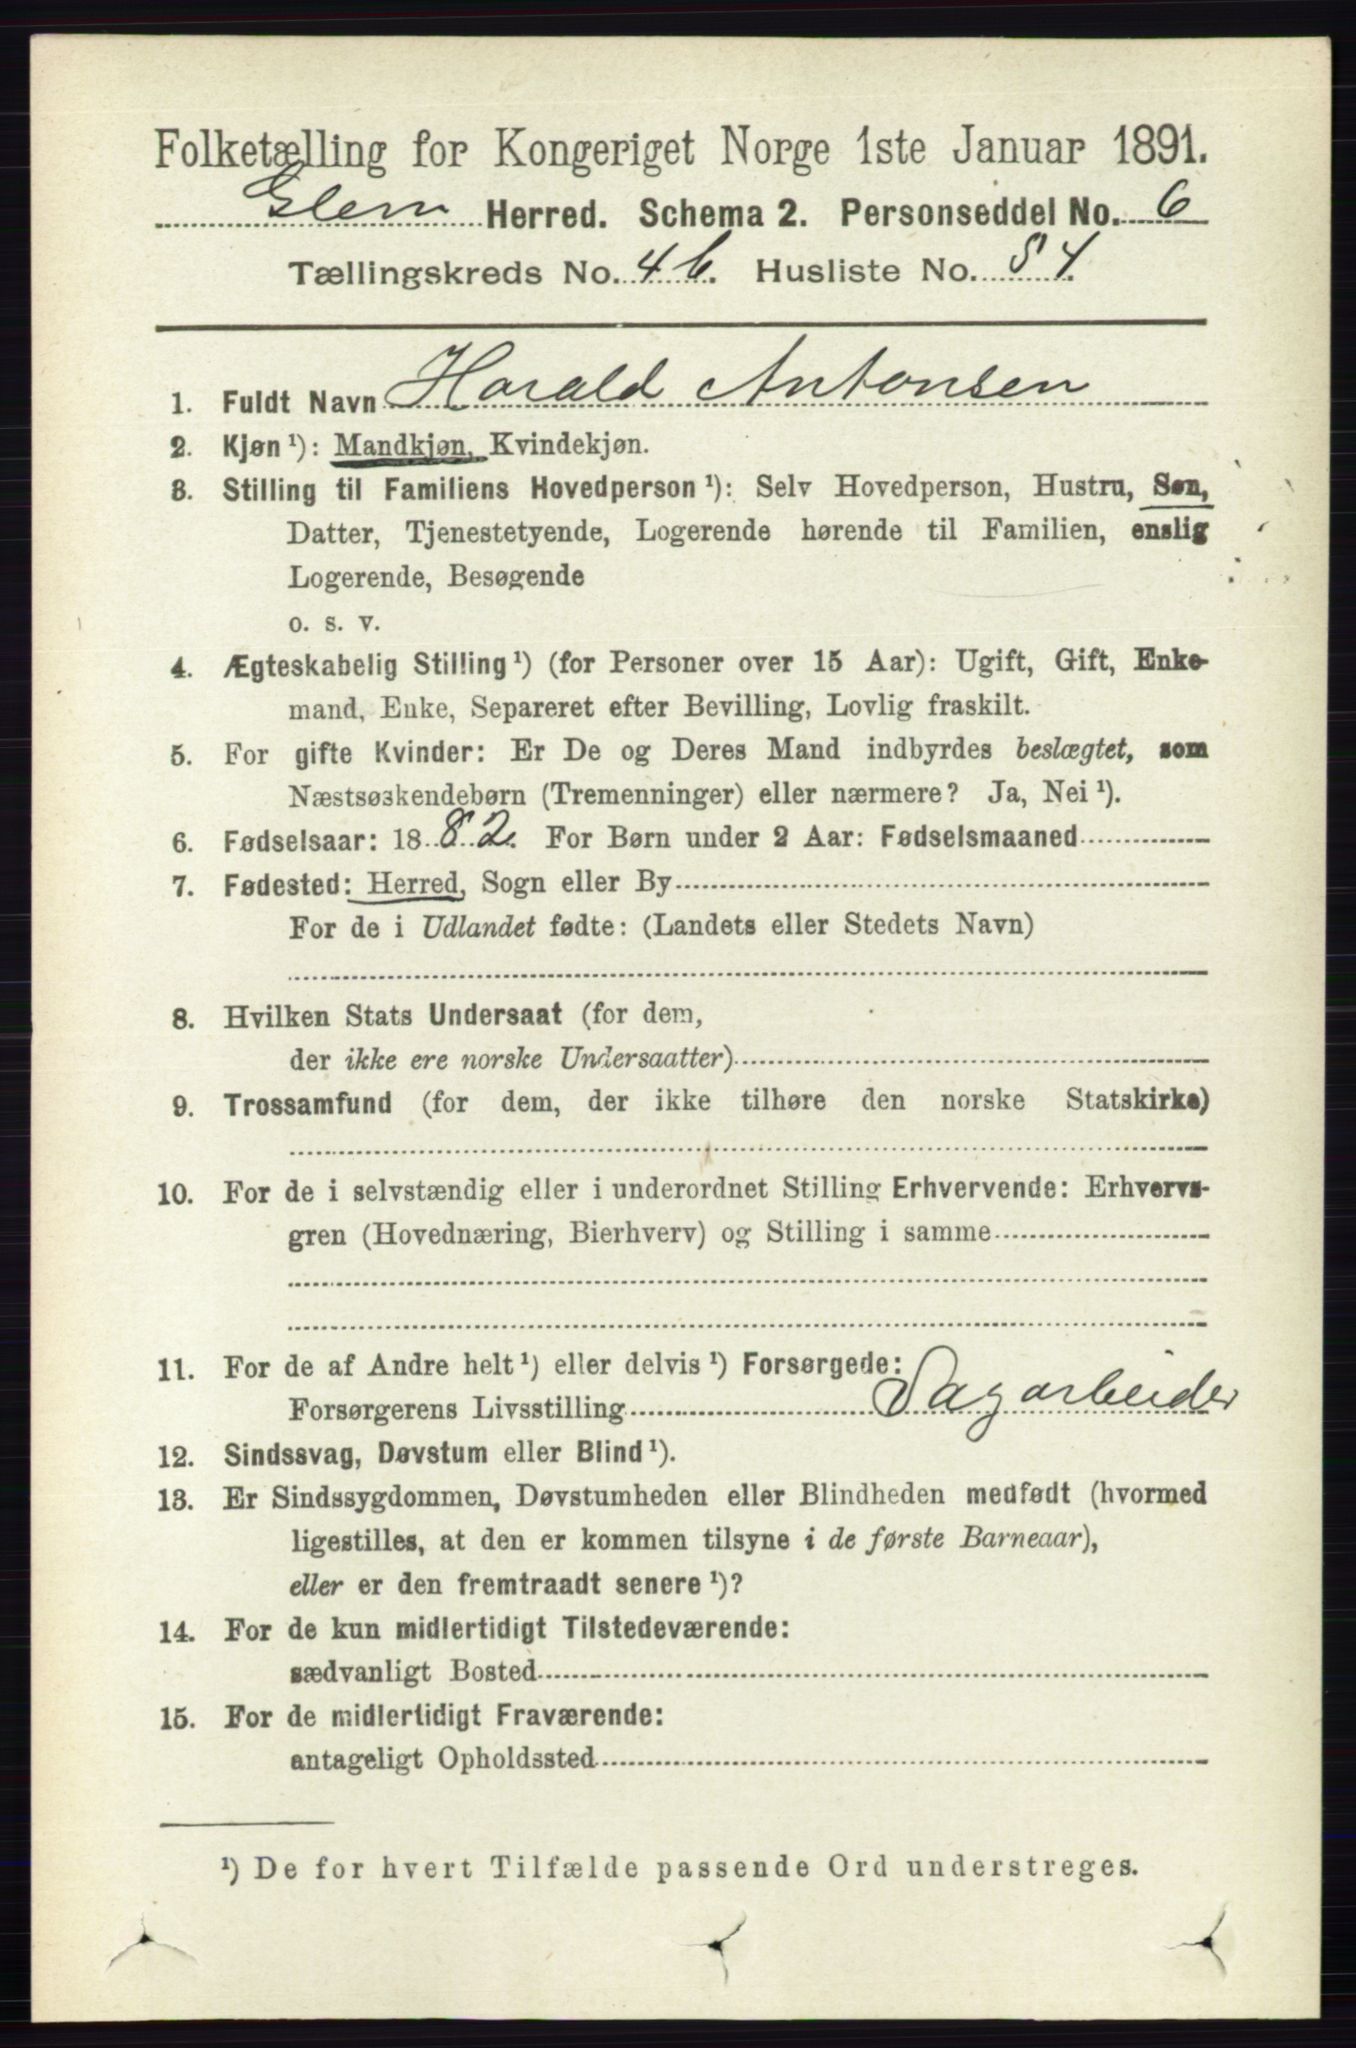 Folketælling for Kongeriget Norge 1ste Januar 1891.
Glem Herred. Schema 2. Personseddel No. 6
Tællingskreds No. 4 b. Husliste No. 54.
1. Fuldt Navn Harald Antonsen
2. Kjøn ¹): Mandkjøn, Kvindekjøn.
3. Stilling til Familiens Hovedperson ¹): Selv Hovedperson, Hustru, Søn,
Datter, Tjenestetyende, Logerende hørende til Familien, enslig
Logerende, Besøgende
o. s. v.
4. Ægteskabelig Stilling ¹) (for Personer over 15 Aar): Ugift, Gift, Enke-
mand, Enke, Separeret efter Bevilling, Lovlig fraskilt.
5. For gifte Kvinder: Er De og Deres Mand indbyrdes beslægtet, som
Næstsøskendebørn (Tremenninger) eller nærmere? Ja, Nei ¹).
6. Fødselsaar: 1882. For Børn under 2 Aar: Fødselsmaaned
7. Fødested: Herred, Sogn eller By
For de i Udlandet fødte: (Landets eller Stedets Navn)
8. Hvilken Stats Undersaat (for dem,
der ikke ere norske Undersaatter)
9. Trossamfund (for dem, der ikke tilhøre den norske Statskirke)
10. For de i selvstændig eller i underordnet Stilling Erhvervende: Erhvervs-
gren (Hovednæring, Bierhverv) og Stilling i samme
11. For de af Andre helt ¹) eller delvis ¹) Forsørgede:
Forsørgerens Livsstilling Sagarbeider
12. Sindssvag, Døvstum eller Blind ¹).
13. Er Sindssygdommen, Døvstumheden eller Blindheden medfødt (hvormed
ligestilles, at den er kommen tilsyne i de første Barneaar),
eller er den fremtraadt senere ¹)?
14. For de kun midlertidigt Tilstedeværende:
sædvanligt Bosted
15. For de midlertidigt Fraværende:
antageligt Opholdssted
¹) De for hvert Tilfælde passende Ord understreges.